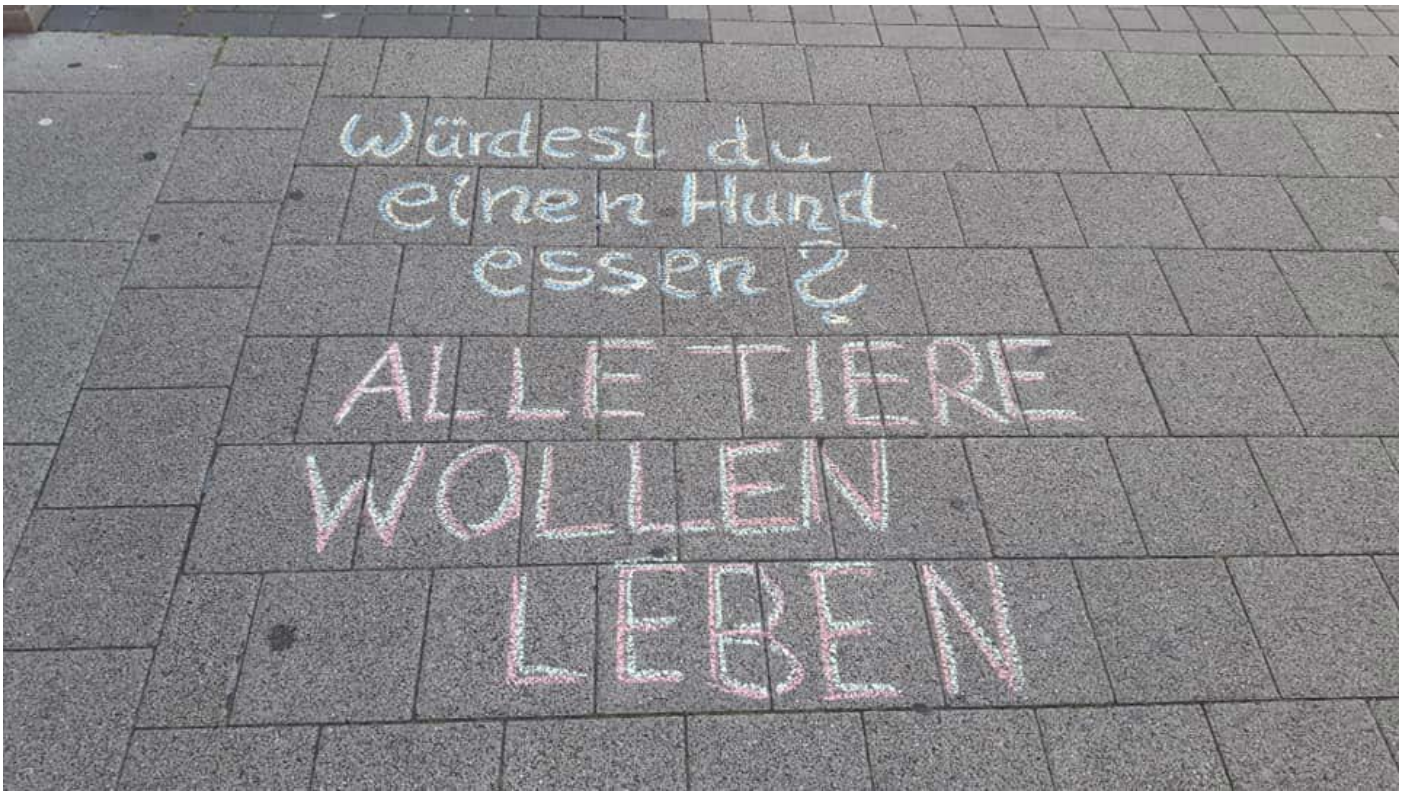 Würdest du
einen Hund
essen?
ALLE TIERE
WOLLEN
LEBEN